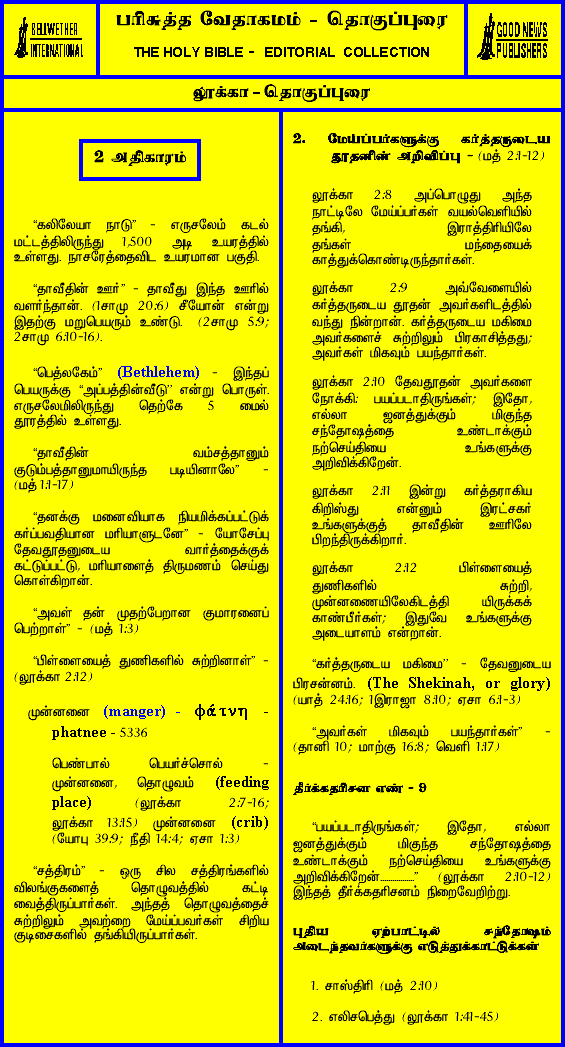 BELLWETHER
INTERNATIONAL
பரிசுத்த வேதாகமம் - தொகுப்புரை
THE HOLY BIBLE - EDITORIAL COLLECTION
GOOD NEWS
PUBLISHERS
லூக்கா - தொகுப்புரை
2 அதிகாரம்
“கலிலேயா நாடு” - எருசலேம் கடல்
மட்டத்திலிருந்து 1,500 அடி உயரத்தில்
உள்ளது. நாசரேத்தைவிட உயரமான பகுதி.
“தாவீதின் ஊர்” - தாவீது இந்த ஊரில்
வளர்ந்தான். (1சாமு 20:6) சீயோன் என்று
இதற்கு மறுபெயரும் உண்டு. (2சாமு 5:9;
2சாமு 6:10-16).
“பெத்லகேம்” (Bethlehem) - இந்தப்
பெயருக்கு “அப்பத்தின்வீடு” என்று பொருள்.
எருசலேமிலிருந்து தெற்கே 5 மைல்
தூரத்தில் உள்ளது.
“தாவீதின் வம்சத்தானும்
குடும்பத்தானுமாயிருந்த படியினாலே” -
(மத் 1:1-17)
“தனக்கு மனைவியாக நியமிக்கப்பட்டுக்
கர்ப்பவதியான மரியாளுடனே” - யோசேப்பு
தேவதூதனுடைய வார்த்தைக்குக்
கட்டுப்பட்டு, மரியாளைத் திருமணம் செய்து
கொள்கிறான்.
“அவள் தன் முதற்பேறான குமாரனைப்
பெற்றாள்” - (மத் 1:3)
“பிள்ளையைத் துணிகளில் சுற்றினாள்” -
(லூக்கா 2:12)
முன்னனை (manger) - φάτνη -
phatnee - 5336
பெண்பால் பெயர்ச்சொல் -
முன்னனை, தொழுவம் (feeding
place) (லூக்கா 2:7-16;
லூக்கா 13:15) முன்னனை (crib)
(யோபு 39:9; நீதி 14:4; ஏசா 1:3)
“சத்திரம்” - ஒரு சில சத்திரங்களில்
விலங்குகளைத் தொழுவத்தில் கட்டி
வைத்திருப்பார்கள். அந்தத் தொழுவத்தைச்
சுற்றிலும் அவற்றை மேய்ப்பவர்கள் சிறிய
குடிசைகளில் தங்கியிருப்பார்கள்.
2. மேய்ப்பர்களுக்கு கர்த்தருடைய
தூதனின் அறிவிப்பு - (மத் 2:1-12)
லூக்கா 2:8 அப்பொழுது அந்த
நாட்டிலே மேய்ப்பர்கள் வயல்வெளியில்
தங்கி, இராத்திரியிலே
தங்கள் மந்தையைக்
காத்துக்கொண்டிருந்தார்கள்.
லூக்கா 2:9 அவ்வேளையில்
கர்த்தருடைய தூதன் அவர்களிடத்தில்
வந்து நின்றான். கர்த்தருடைய மகிமை
அவர்களைச் சுற்றிலும் பிரகாசித்தது;
அவர்கள் மிகவும் பயந்தார்கள்.
லூக்கா 2:10 தேவதூதன் அவர்களை
நோக்கி: பயப்படாதிருங்கள்; இதோ,
எல்லா ஜனத்துக்கும் மிகுந்த
சந்தோஷத்தை உண்டாக்கும்
நற்செய்தியை உங்களுக்கு
அறிவிக்கிறேன்.
லூக்கா 2:11 இன்று கர்த்தராகிய
கிறிஸ்து என்னும் இரட்சகர்
உங்களுக்குத் தாவீதின் ஊரிலே
பிறந்திருக்கிறார்.
லூக்கா 2:12 பிள்ளையைத்
துணிகளில் சுற்றி,
முன்னணையிலேகிடத்தி யிருக்கக்
காண்பீர்கள்; இதுவே உங்களுக்கு
அடையாளம் என்றான்.
“கர்த்தருடைய மகிமை” - தேவனுடைய
பிரசன்னம். (The Shekinah, or glory)
(யாத் 24:16; 1இராஜா 8:10; ஏசா 6:1-3)
“அவர்கள் மிகவும் பயந்தார்கள்” -
(தானி 10; மாற்கு 16:8; வெளி 1:17)
தீர்க்கதரிசன எண் - 9
“பயப்படாதிருங்கள்; இதோ, எல்லா
ஜனத்துக்கும் மிகுந்த சந்தோஷத்தை
உண்டாக்கும் நற்செய்தியை உங்களுக்கு
அறிவிக்கிறேன்................” (லூக்கா 2:10-12)
இந்தத் தீர்க்கதரிசனம் நிறைவேறிற்று.
புதிய ஏற்பாட்டில் சந்தோஷம்
அடைந்தவர்களுக்கு எடுத்துக்காட்டுக்கள்
1. சாஸ்திரி (மத் 2:10)
2. எலிசபெத்து (லூக்கா 1:41-45)